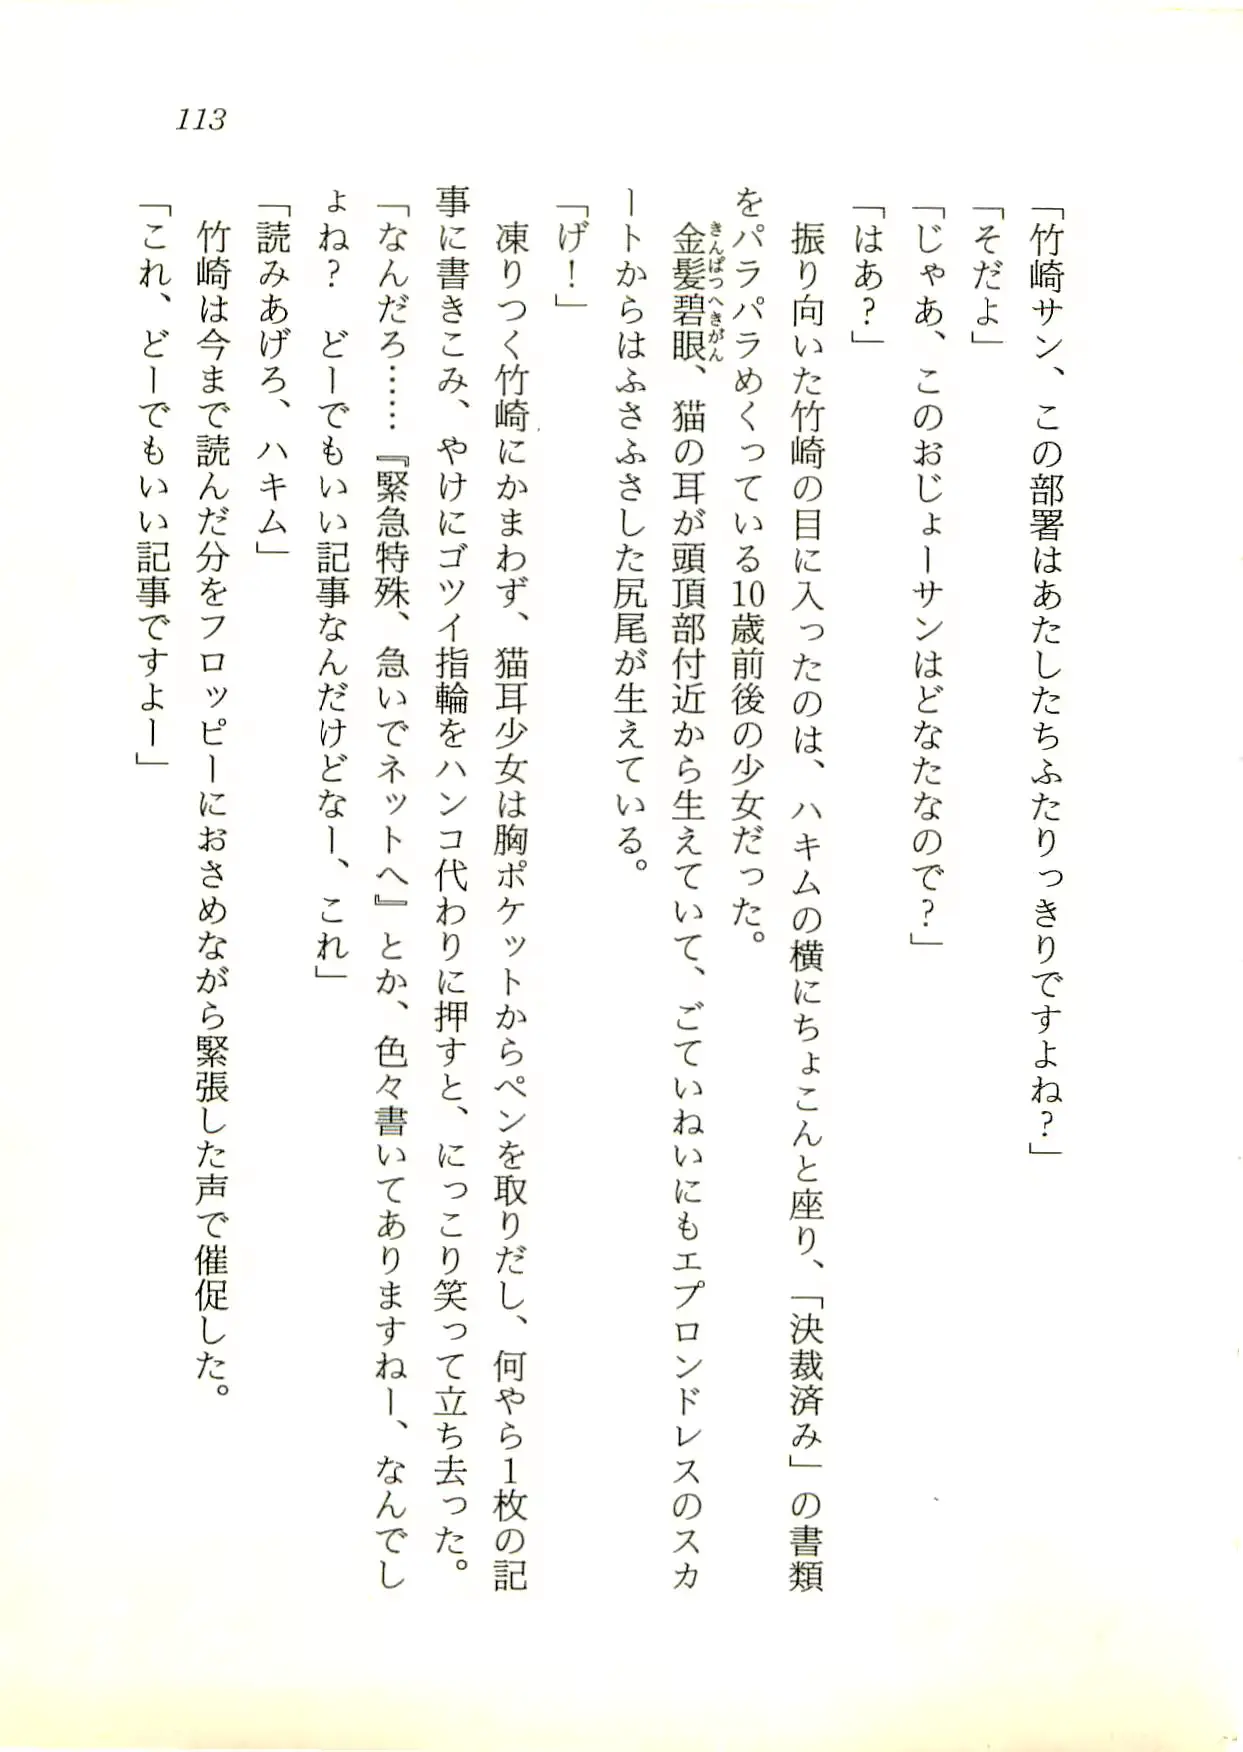 113
「竹崎サン、この部署はあたしたちふたりっきりですよね？」
「そだよ」
「じゃあ、このおじょーサンはどなたなので？」
「はあ？」
振り向いた竹崎の目に入ったのは、ハキムの横にちょこんと座り、「決裁済み」の書類
をパラパラめくっている10歳前後の少女だった。
きんぱつへきがん
金髪碧眼、猫の耳が頭頂部付近から生えていて、ごていねいにもエプロンドレスのスカ
ートからはふさふさした尻尾が生えている。
「げ！」
凍りつく竹崎にかまわず、猫耳少女は胸ポケットからペンを取りだし、何やら1枚の記
事に書きこみ、やけにゴツイ指輪をハンコ代わりに押すと、にっこり笑って立ち去った。
「なんだろ……『緊急特殊、急いでネットへ』とか、色々書いてありますねー、なんでし
ょね？　どーでもいい記事なんだけどなー、これ」
「読みあげろ、ハキム」
竹崎は今まで読んだ分をフロッピーにおさめながら緊張した声で催促した。
「これ、どーでもいい記事ですよー」